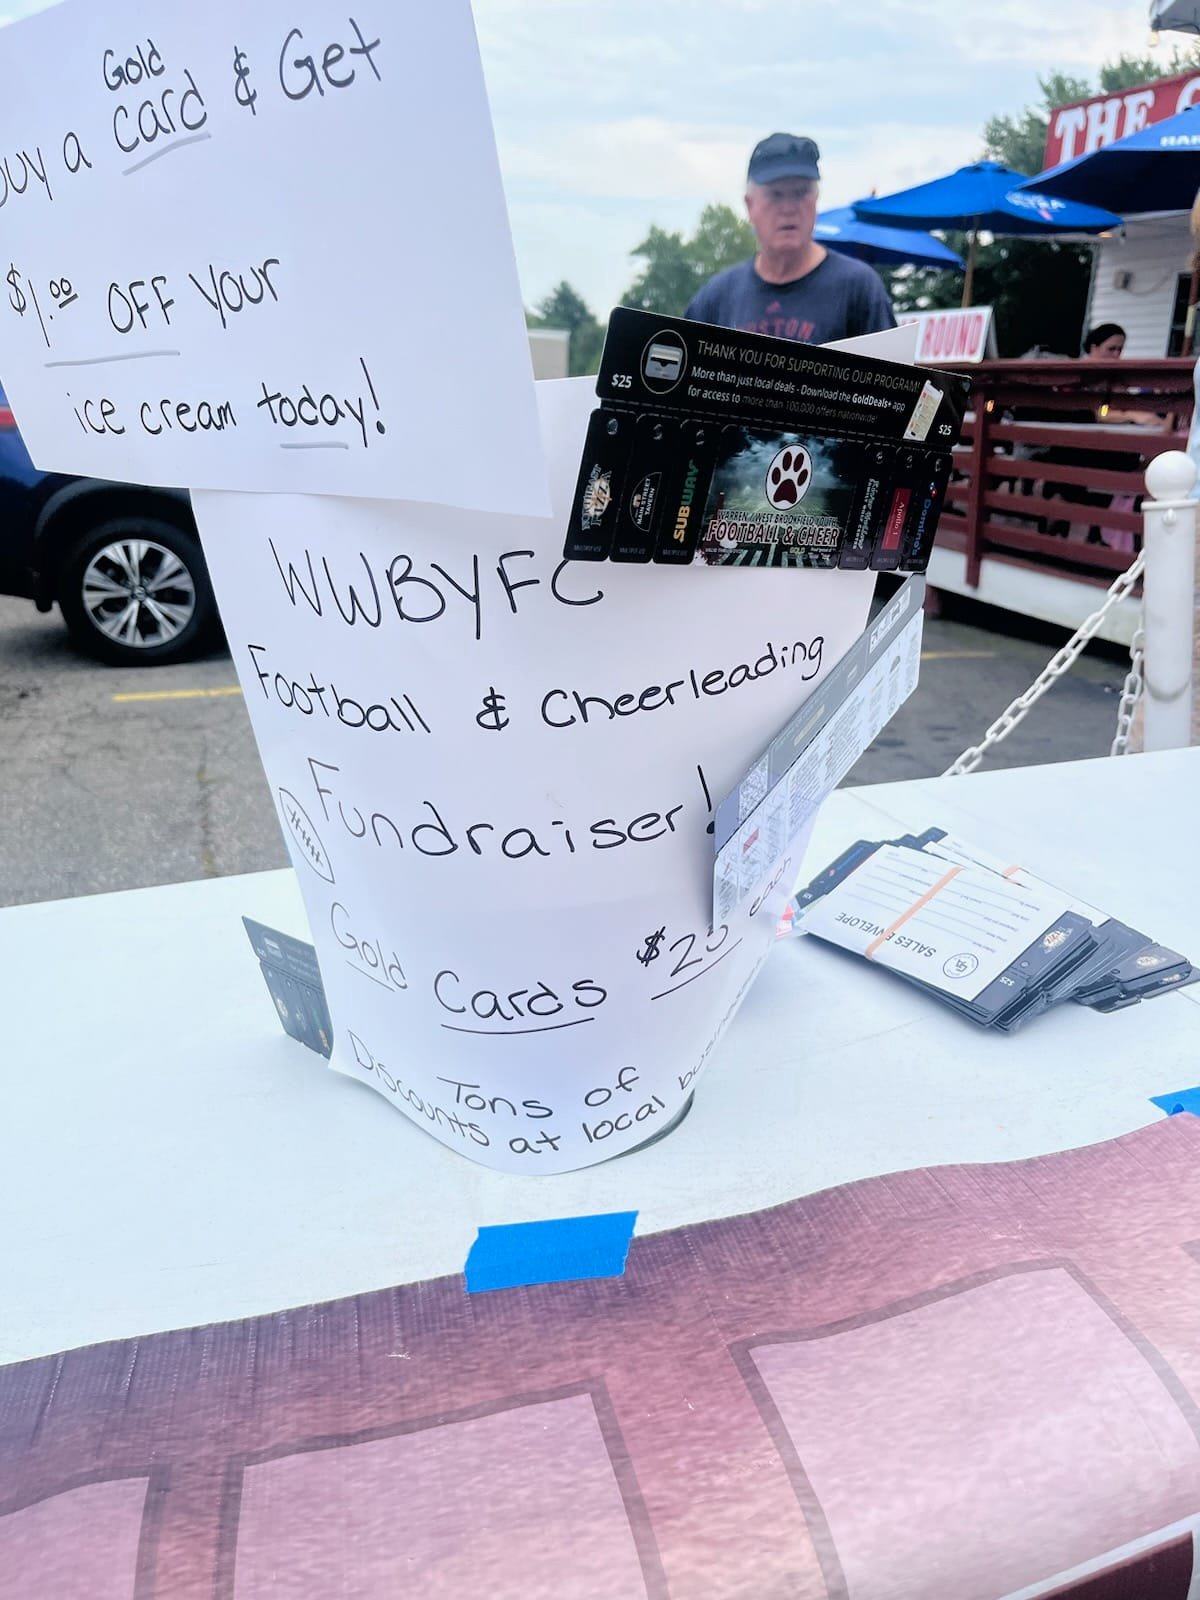 Gold
buy a card & Get
$1.00 OFF your
ice cream today!
THE
BOSTON
ROUND
$25
THANK YOU FOR SUPPORTING OUR PROGRAM!
More than just local deals - Download the GoldDeals+ app
for access to more than 100,000 offers nationwide!
$25
MAIN STREET
TAVERN
SUBWAY
WARREN / WEST BROOKFIELD YOUTH
FOOTBALL & CHEER
GOLD
Apollo
Domino's
WWBYFC
Football & Cheerleading
Fundraiser!
Gold Cards $25 each
Tons of
Discounts at local
SALES ENVELOPE
$25